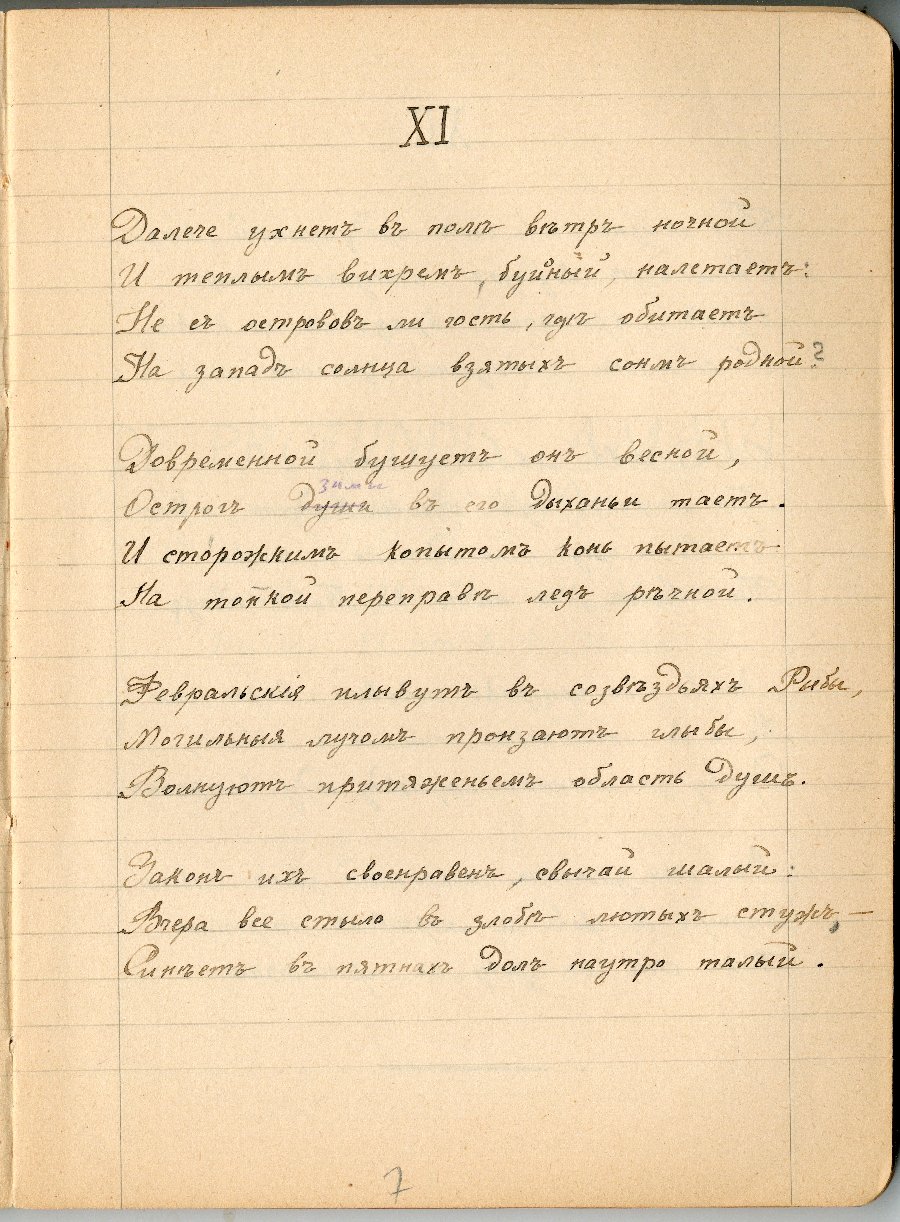 XI
Далече ухнетъ въ полѣ вѣтръ ночной
И теплымъ вихремъ, буйный, налетаетъ:
Не съ острововъ ли гость, гдѣ обитаетъ
На западъ солнца взятыхъ сонмъ родной?
Довременной бушуетъ онъ весной,
зимы
Острогъ души въ его дыханьи таетъ.
И сторожкимъ копытомъ конь пытаетъ
На топкой переправѣ ледъ рѣчной.
Февральскія плывутъ въ созвѣздьяхъ Рыбы,
Могильныя лучомъ пронзаютъ глыбы,
Волнуютъ притяженьемъ область душъ.
Законъ ихъ своенравенъ, свычай шалый:
Вчера все стыло въ злобѣ лютыхъ стужъ, —
Синѣетъ въ пятнахъ долъ наутро талый.
7